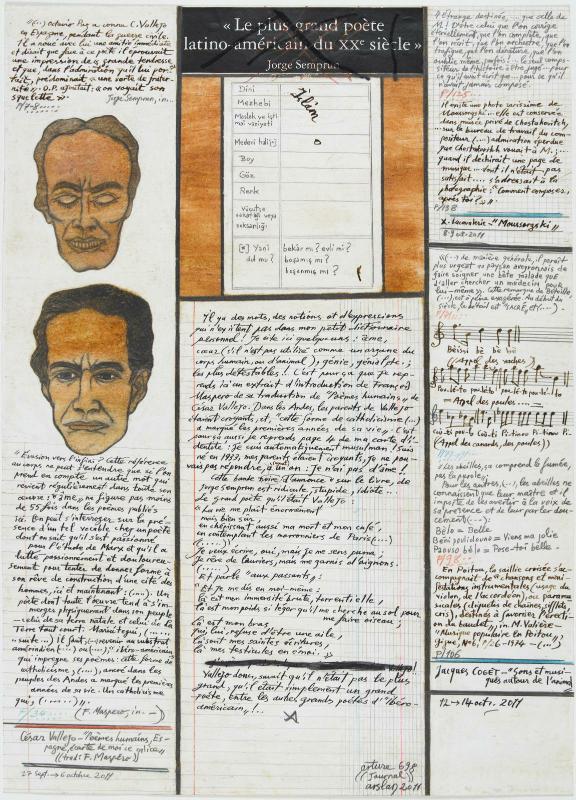 « (...) admirer Puy a connu C. Vallejo
en Espagne, pendant la guerre civile.
Il a noué avec lui une amitié immédiate
et disait que face à ce poète il éprouvait
une impression de « grande tendresse
et que, dans l'admiration qu'il lui por-
tait, prédominait « une sorte de frater-
nité » . O.P. ajoutait : « on voyait son
squelette »
Jorge Semprun, in...
« Evasion vers l'infini ? Cette référence
au corps ne peut s'entendre que si l'on
prend en compte un autre mot qui
revient régulièrement dans toute son
œuvre : "âme" ne figure pas moins
de 55 fois dans les poèmes publiés
ici. On peut s'interroger sur la pré-
sence d'un tel vocable chez un poète
dont on sait qu'il s'est passionné
pour l'étude de Marx et qu'il a
lutté passionnément et douloureu-
sement pour tenter de donner forme à
son rêve de construction d'une cité des
hommes, ici et maintenant : (...). Un
poète dont toute l'œuvre tend à s'im-
merger physiquement dans son peuple
— celui de sa terre natale et celui de la
Terre tout court. Mariátegui, (......
... suite...) il faut (...) revenir au substrat
amérindien (...) ou (...), « ibéro-américain »
qui imprègne ses poèmes : cette forme de
catholicisme, (...), ancré dans les
peuples des Andes a marqué les premières
années de sa vie. Un catholicisme
qui, (.......)».
(F. Maspero, in. — )
César Vallejo — "Poèmes humains, Es-
pagne, écarte de moi ce calice »
((trad: F. Maspéro))
27 sept. → 6 octobre 2011
« Le plus grand poète
latino-américain du XXe siècle »
Jorge Semprun
Dini
İslim
Mezhebi
Meslek ve içti-
mai vaziyeti
Medeni hali [*]
Boy
Göz
Renk
Vücutça
sakatlığı veya
noksanlığı
[*] Yani
dul mu ?
bekâr mı ? evli mi ?
boşamış mı ?
boşanmış mı ?
Il y a des mots, des notions et d'expressions
qui n'existent pas dans mon petit dictionnaire
personnel ! Je cite ici quelques uns : âme,
cœur (s'il n'est pas utilisé comme un organe du
corps humain, ou d'animal !), génie, génial, etc..;
les plus détestables !. C'est pour ça que je rep-
rends ici un extrait d'introduction de François
Maspero de sa traduction de "Poèmes humains" de
César Vallejo. Dans les Andes, les parents de Vallejo
étaient croyants, et, "cette forme de catholicisme (...)
a marqué les premières années de sa vie". C'est
pour ça aussi je reprends page 4 de ma carte d'i-
dentité : Je suis automatiquement musulman ! Suis
né en 1939, mes parents étaient croyants, je ne pou-
vais pas répondre, à un an : Je n'ai pas d'âme !
Cette bande noire d'annonce "sur le livre, de
Jorge Semprun est ridicule, stupide, idiote...
Le grand poète qu'était Vallejo :
« La vie me plaît énormément
mais, bien sûr,
en chérissant aussi ma mort et mon café,
en contemplant les marronniers de Paris (...)
(.......)
Je veux écrire, oui, mais je me sens puma ;
Je rêve de lauriers, mais me garnis d'oignons.
(......)
Et parle "aux passants,:
« Et je me dis en moi-même :
là est mon immensité brute, torrentielle,
là est mon poids si léger qu'il me cherche au sol pour
me faire oiseau;
là est mon bras,
qui, lui, refusa d'être une aile,
là sont mes saintes écritures,
là mes testicules en émoi. »
Vallejo donc, savait qu'il n'était pas le plus
grand, qu'il était simplement un grand
poète, entre les autres grands poètes d'"Ibéro-
américain,, !...
arture 698
((Journal))
arslan 2011
« Etrange destinée ... que celle de
M. ! Notre celui que l'on corrige
éternellement, que l'on complète, que
l'on récrit, que l'on orchestre, que l'on
ce qu'il n'avait jamais composé.
P/125
Il existe une photo rarissime de
Moussorgski ... elle est conservée
dans musée privé de Chostakovitch,
sur le bureau de travail du com-
positeur (...) admiration éperdue
que Chostakovitch vouait à M. ; ...
quand il déchirait une page de
musique ... dont il n'était pas
satisfait .... s'adressait à la
photographie : "Comment composez,
après toi ? »
P/138
X. Lacavalerie — "Moussorgski"
8-9 08 - 2011
« (...) de manière générale, il paraît
plus urgent au paysan aveyronnais de
faire soigner une bête malade que
d'aller chercher un médecin pour
lui-même. Cette remarque de Béteille,
(...), est à peine exagérée. Au début du
siècle, le bétail est "SACRÉ, et (...).
Béissi bè bè bé
(Appel des vaches)
— Appel des poules ...
(Appel des canards, des poules))
« Les abeilles, ça comprend la fumée,
pas la parole.»
Pour les autres, (...), les abeilles ne
connaissent que leur maître et il
importe de les avertir à la voix de
sa présence et de leur parler dou-
cement (...) :
Bèlo = Belle
Béni poulidouno = Viens ma jolie
Paouso bèlo = Pose-toi belle.
P/98
En Poitou, la saillie croisée s'ac-
compagnait de "chansons et mani-
festations instrumentales, (usage du
violon, de l'accordéon), ou paramu-
sicales (cliquetis de chaînes, sifflets,
cris), destinés à favoriser l'érecti-
on du baudet", in. M. Valière —
"Musique populaire en Poitou",
P/106
Jacques COGET — "Sons et musi-
ques autour de l'animal
12 → 14 oct. 2011